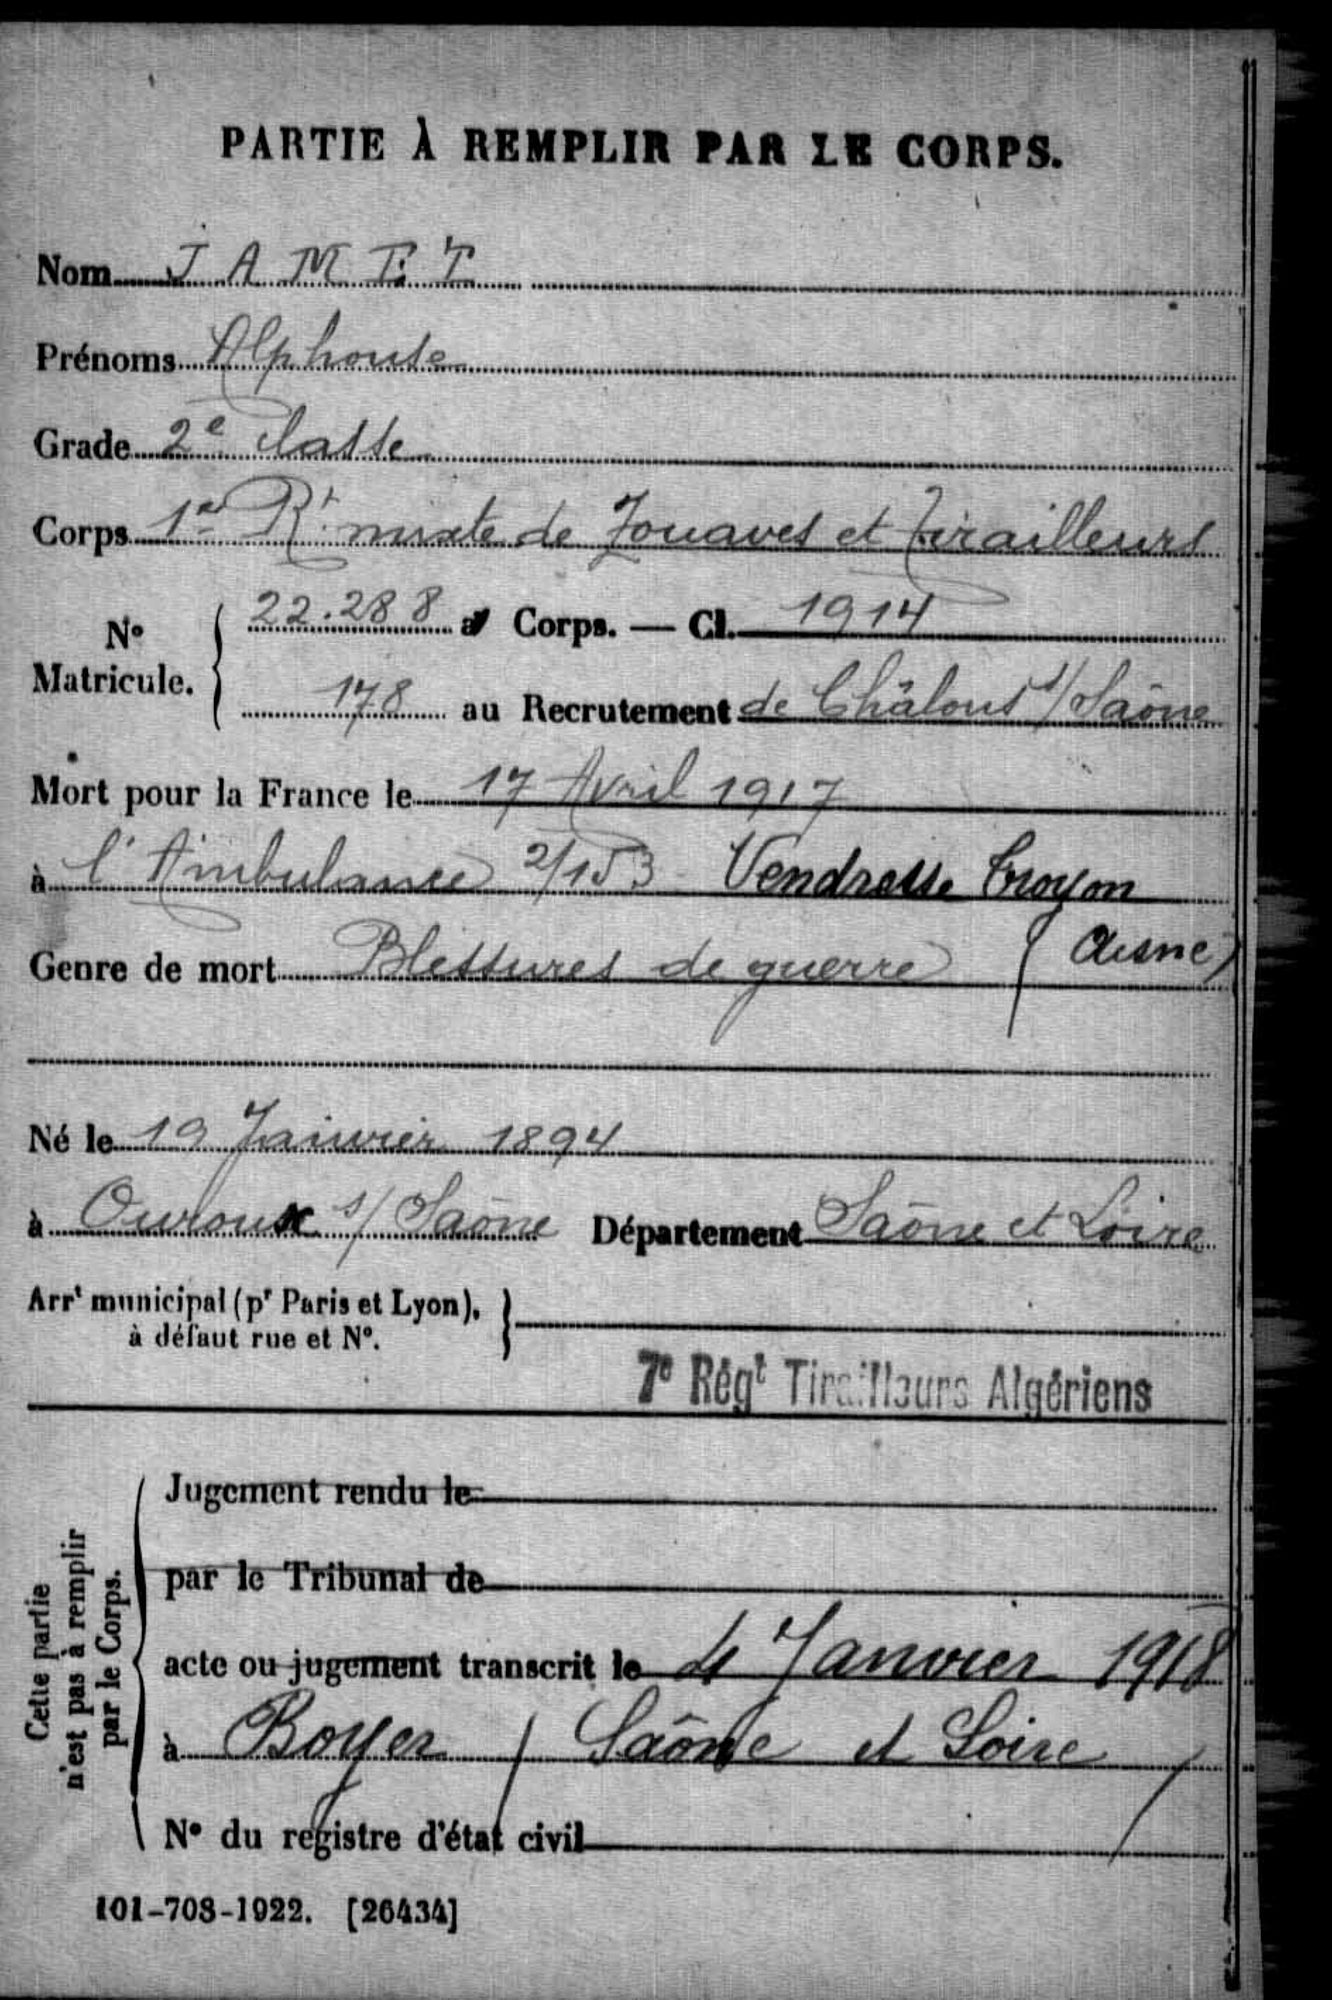 PARTIE À REMPLIR PAR LE CORPS.
Nom JAMET
Prénoms Alphonse
Grade 2e Classe
Corps 1er Rt mixte de Zouaves et Tirailleurs
No Matricule. { 22.288 au Corps. — Cl. 1914
178 au Recrutement de Châlons s/ Saône
Mort pour la France le 17 Avril 1917
à l'Ambulance 2/153 Vendresse Troyon
(Aisne)
Genre de mort Blessures de guerre
Né le 19 Janvier 1894
à Ouroux s/ Saône Département Saône et Loire
Arrt municipal (pr Paris et Lyon),
à défaut rue et No.
7e Régt Tirailleurs Algériens
Cette partie
n'est pas à remplir
par le Corps.
Jugement rendu le
par le Tribunal de
acte ou jugement transcrit le 4 Janvier 1918
à Boyer (Saône et Loire)
No du registre d'état civil
101-708-1922. [26434]